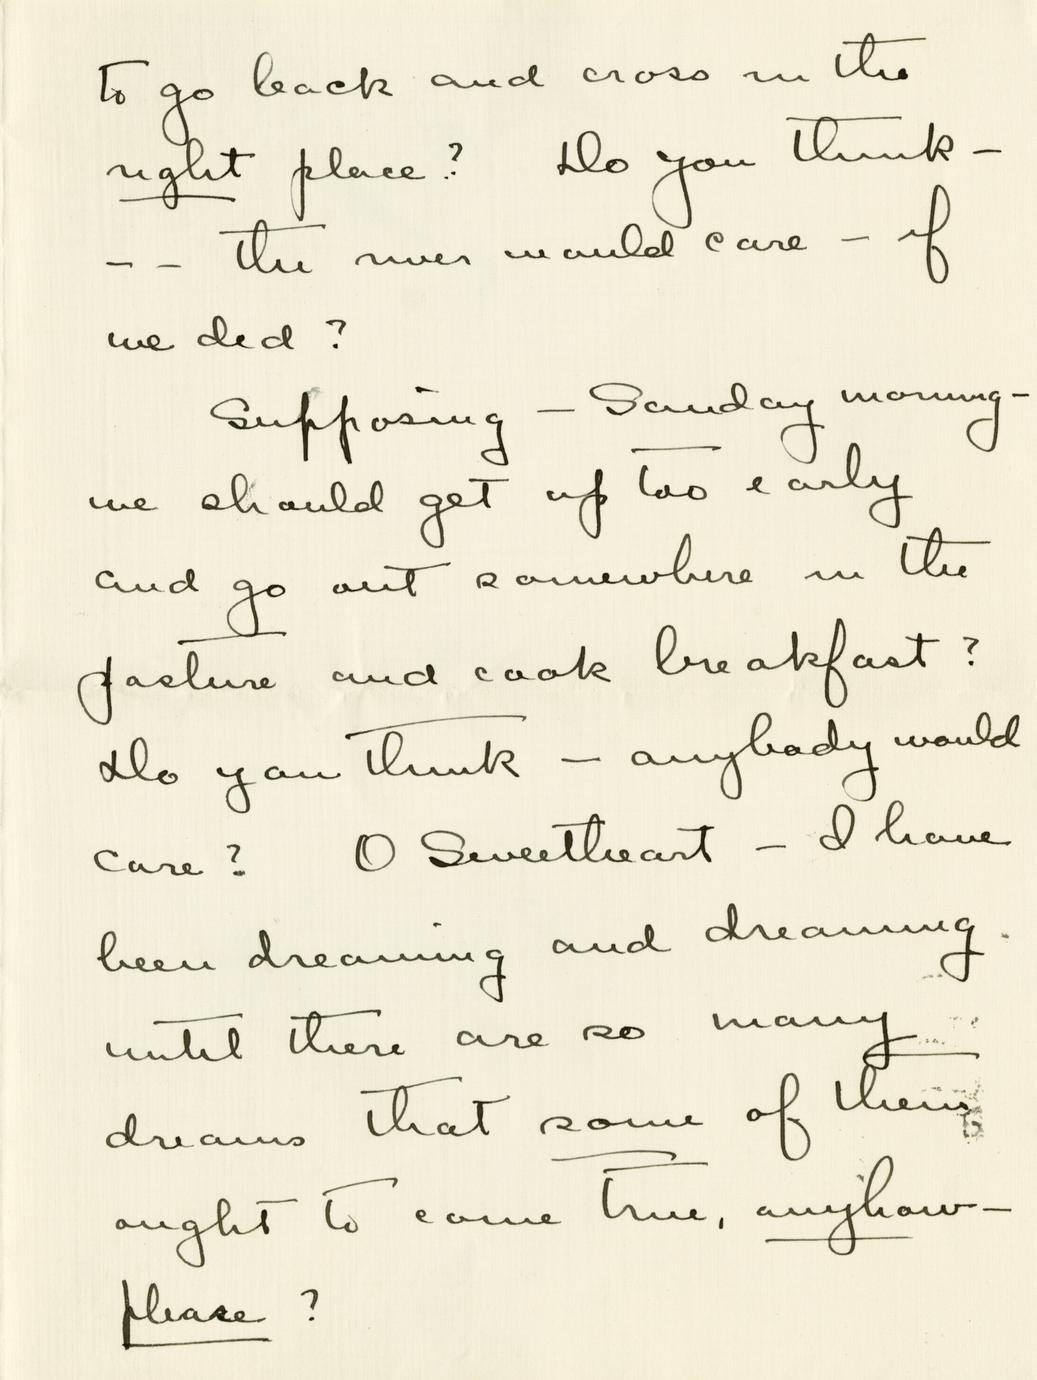 to go back and cross in the
right place? Do you think –
– – the river would care – if
we did?
Supposing – Sunday morning –
we should get up too early
and go out somewhere in the
pasture and cook breakfast?
Do you think – anybody would
care? O Sweetheart – I have
been dreaming and dreaming
until there are so many
dreams that some of them
ought to come true, anyhow –
please?